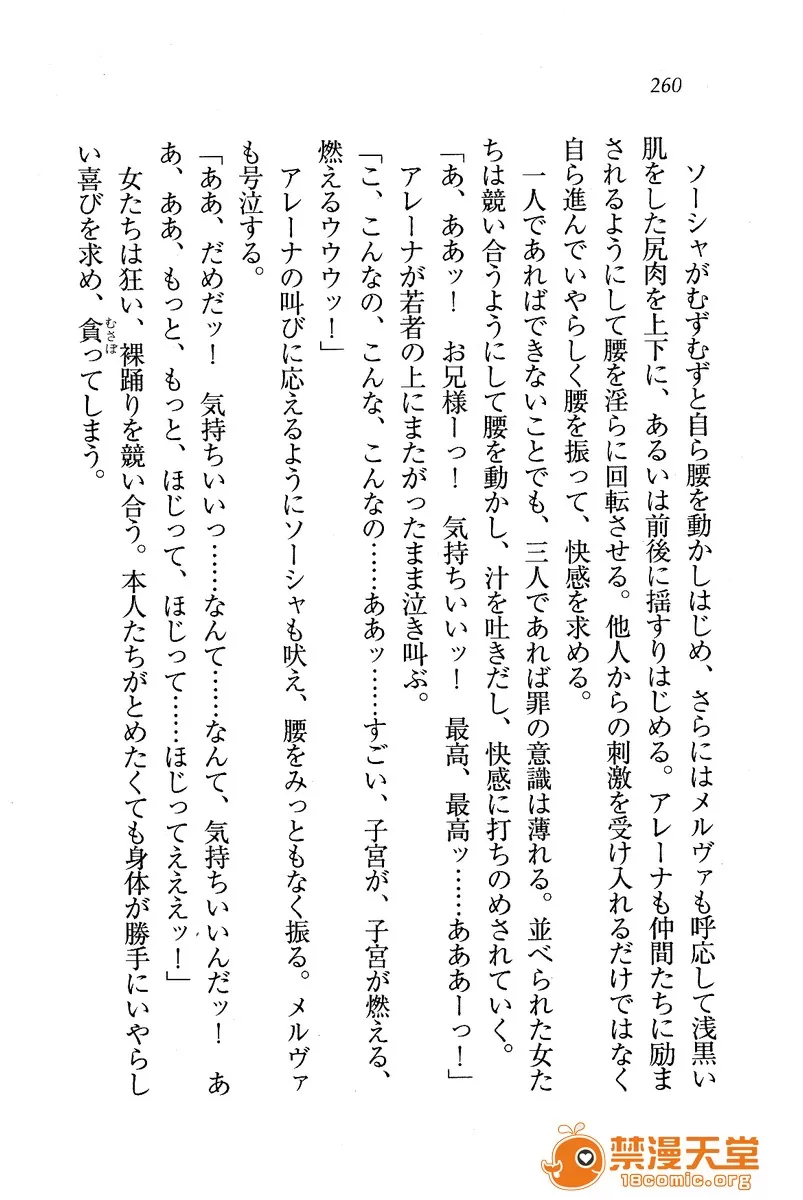 260
ソーシャがむずむずと自ら腰を動かしはじめ、さらにはメルヴァも呼応して浅黒い
肌をした尻肉を上下に、あるいは前後に揺すりはじめる。アレーナも仲間たちに励ま
されるようにして腰を淫らに回転させる。他人からの刺激を受け入れるだけではなく
自ら進んでいやらしく腰を振って、快感を求める。
一人であればできないことでも、三人であれば罪の意識は薄れる。並べられた女た
ちは競い合うようにして腰を動かし、汁を吐きだし、快感に打ちのめされていく。
「あ、ああッ！　お兄様ーっ！　気持ちいいッ！　最高、最高ッ……あああーっ！」
アレーナが若者の上にまたがったまま泣き叫ぶ。
「こ、こんなの、こんな、こんなの……ああッ……すごい、子宮が、子宮が燃える、
燃えるゥウウッ！」
アレーナの叫びに応えるようにソーシャも吠え、腰をみっともなく振る。メルヴァ
も号泣する。
「ああ、だめだッ！　気持ちいいっ……なんて……なんて、気持ちいいんだッ！　あ
あ、ああ、もっと、もっと、ほじって、ほじって……ほじってえええッ！」
女たちは狂い、裸踊りを競い合う。本人たちがとめたくても身体が勝手にいやらし
い喜びを求め、貪むさぼってしまう。
禁漫天堂
18comic.org